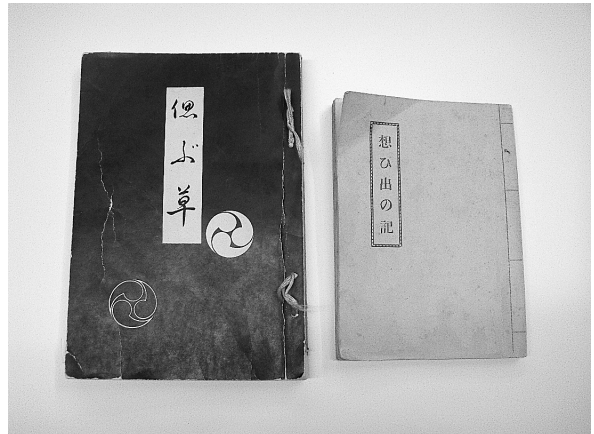 偲ぶ草
想ひ出の記